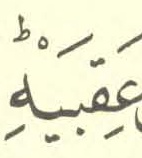 عَقِبَيْهِؕ